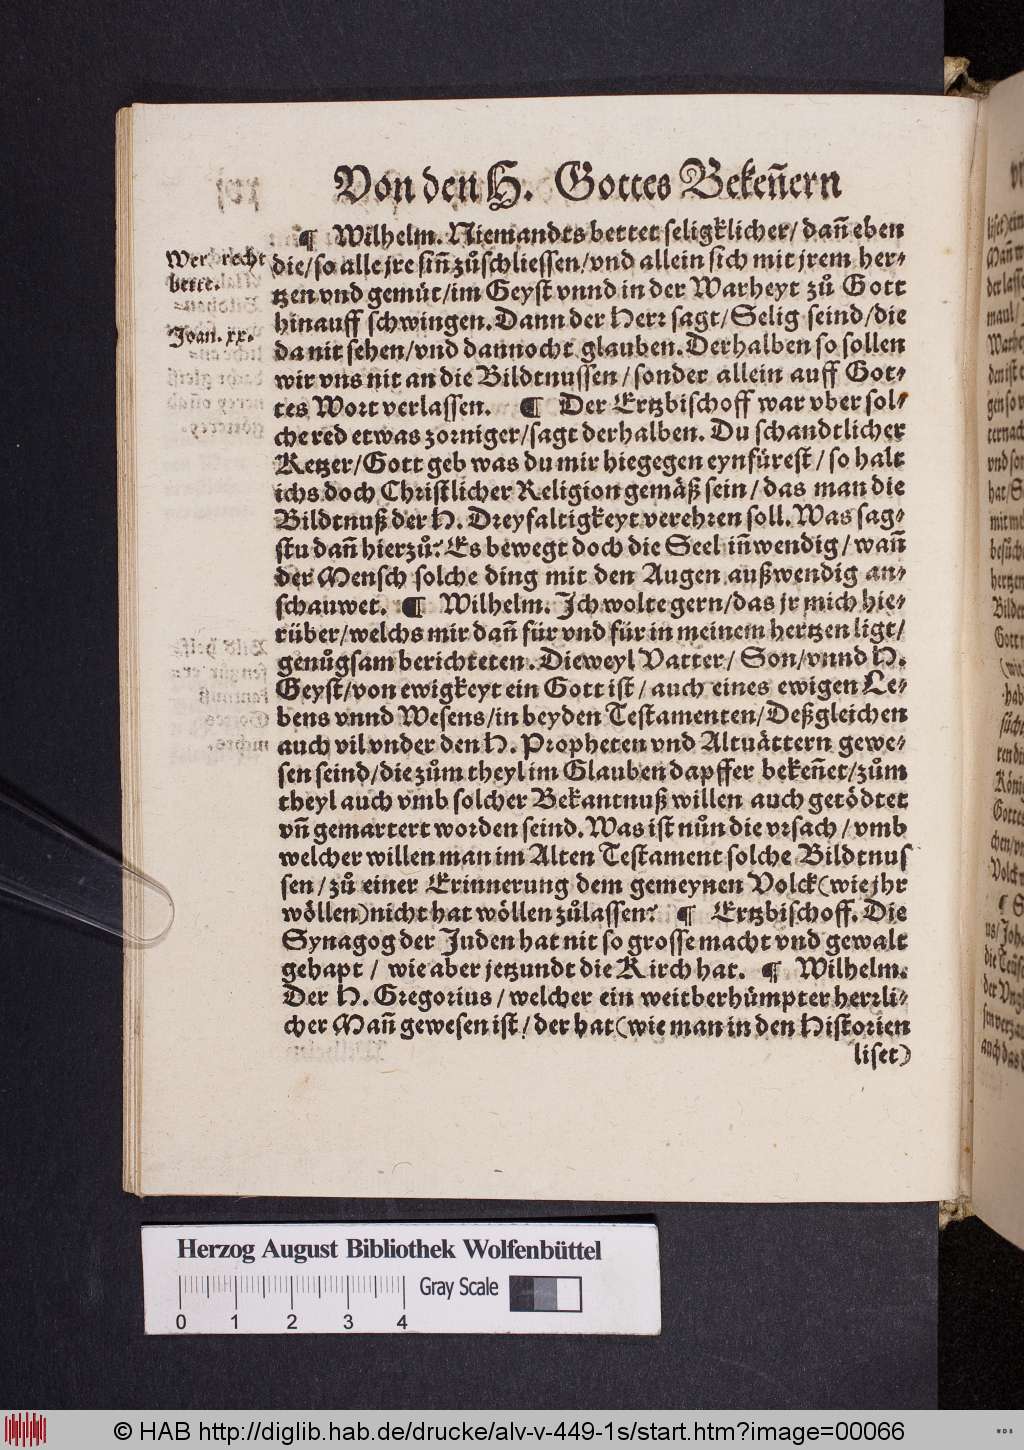 Von den H. Gottes Bekeñern
¶ Wilhelm. Niemandts bettet seligklicher/ dañ eben
Wer recht
bette.
Joan. xx.
die/so alle jre siñ zůschliessen/vnd allein sich mit jrem her-
tzen vnd gemüt/im Geyst vnnd in der Warheyt zů Gott
hinauff schwingen. Dann der Herr sagt/Selig seind/die
da nit sehen/vnd dannocht glauben. Derhalben so sollen
wir vns nit an die Bildtnussen/sonder allein auff Got-
tes Wort verlassen. ¶ Der Ertzbischoff war vber sol-
che red etwas zorniger/sagt derhalben. Du schandtlicher
Ketzer/Gott geb was du mir hiegegen eynfürest/so halt
ichs doch Christlicher Religion gemäß sein/das man die
Bildtnuß der H. Dreyfaltigkeyt verehren soll. Was sag-
stu dañ hierzů? Es bewegt doch die Seel iñwendig/wañ
der Mensch solche ding mit den Augen außwendig an-
schauwet. ¶ Wilhelm. Ich wolte gern/das jr mich hie-
rüber/welchs mir dañ für vnd für in meinem hertzen ligt/
genůgsam berichteten. Dieweyl Vatter/ Son/vnnd H.
Geyst/von ewigkeyt ein Gott ist/auch eines ewigen Le-
bens vnnd Wesens/in beyden Testamenten/Deßgleichen
auch vil vnder den H. Propheten vnd Altuättern gewe-
sen seind/die zům theyl im Glauben dapffer bekeñet/zům
theyl auch vmb solcher Bekantnuß willen auch getödtet
vñ gemartert worden seind. Was ist nůn die vrsach/vmb
welcher willen man im Alten Testament solche Bildtnus
sen/zů einer Erinnerung dem gemeynen Volck(wie jhr
wöllen)nicht hat wöllen zůlassen? ¶ Ertzbischoff. Die
Synagog der Juden hat nit so grosse macht vnd gewalt
gehapt/ wie aber jetzundt die Kirch hat. ¶ Wilhelm.
Der H. Gregorius/welcher ein weitberhümpter herrli-
cher Mañ gewesen ist/der hat(wie man in den Historien
liset)
Herzog August Bibliothek Wolfenbüttel
Gray Scale
0 1 2 3 4
© HAB http://diglib.hab.de/drucke/alv-v-449-1s/start.htm?image=00066